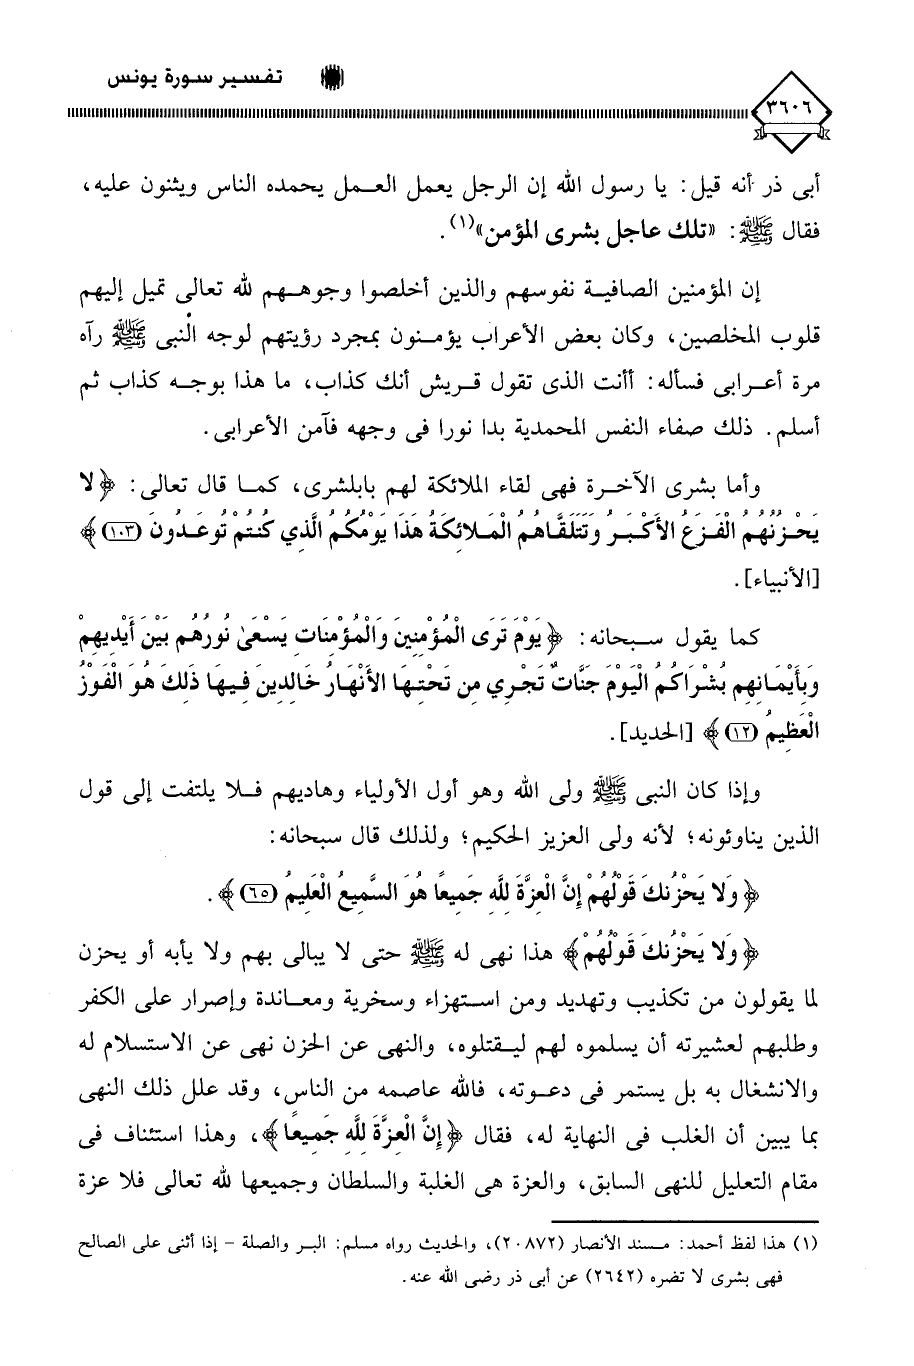 تفسير سورة يونس
٣٦٠٦
أبى ذر أنه قيل: يا رسول الله إن الرجل يعمل العمل يحمده الناس ويثنون عليه،
فقال ﷺ: «تلك عاجل بشرى المؤمن»(١).
إن المؤمنين الصافية نفوسهم والذين أخلصوا وجوههم لله تعالى تميل إليهم
قلوب المخلصين، وكان بعض الأعراب يؤمنون بمجرد رؤيتهم لوجه النبى ﷺ رآه
مرة أعرابى فسأله: أأنت الذى تقول قريش أنك كذاب، ما هذا بوجه كذاب ثم
أسلم. ذلك صفاء النفس المحمدية بدا نورا فى وجهه فآمن الأعرابى.
وأما بشرى الآخرة فهى لقاء الملائكة لهم بابلشرى، كما قال تعالى: ﴿لا
يَحْزُنُهُمُ الْفَزَعُ الأَكْبَرُ وَتَتَلَقَّاهُمُ الْمَلائِكَةُ هَذَا يَوْمُكُمُ الَّذِي كُنتُمْ تُوعَدُونَ (١٠٣)﴾
[الأنبياء].
كما يقول سبحانه: ﴿يَوْمَ تَرَى الْمُؤْمِنِينَ وَالْمُؤْمِنَاتِ يَسْعَىٰ نُورُهُم بَيْنَ أَيْدِيهِمْ
وَبِأَيْمَانِهِم بُشْرَاكُمُ الْيَوْمَ جَنَّاتٌ تَجْرِي مِن تَحْتِهَا الأَنْهَارُ خَالِدِينَ فِيهَا ذَلِكَ هُوَ الْفَوْزُ
الْعَظِيمُ (١٢)﴾ [الحديد].
وإذا كان النبى ﷺ ولى الله وهو أول الأولياء وهاديهم فلا يلتفت إلى قول
الذين يناوئونه؛ لأنه ولى العزيز الحكيم؛ ولذلك قال سبحانه:
﴿وَلا يَحْزُنكَ قَوْلُهُمْ إِنَّ الْعِزَّةَ لِلَّهِ جَمِيعًا هُوَ السَّمِيعُ الْعَلِيمُ (٦٥)﴾.
﴿وَلا يَحْزُنكَ قَوْلُهُمْ﴾ هذا نهى له ﷺ حتى لا يبالى بهم ولا يأبه أو يحزن
لما يقولون من تكذيب وتهديد ومن استهزاء وسخرية ومعاندة وإصرار على الكفر
وطلبهم لعشيرته أن يسلموه لهم ليقتلوه، والنهى عن الحزن نهى عن الاستسلام له
والانشغال به بل يستمر فى دعوته، فالله عاصمه من الناس، وقد علل ذلك النهى
بما يبين أن الغلب فى النهاية له، فقال ﴿إِنَّ الْعِزَّةَ لِلَّهِ جَمِيعًا﴾، وهذا استئناف فى
مقام التعليل للنهى السابق، والعزة هى الغلبة والسلطان وجميعها لله تعالى فلا عزة
(١) هذا لفظ أحمد: مسند الأنصار (٢٠٨٧٢)، والحديث رواه مسلم: البر والصلة - إذا أثنى على الصالح
فهى بشرى لا تضره (٢٦٤٢) عن أبى ذر رضى الله عنه.